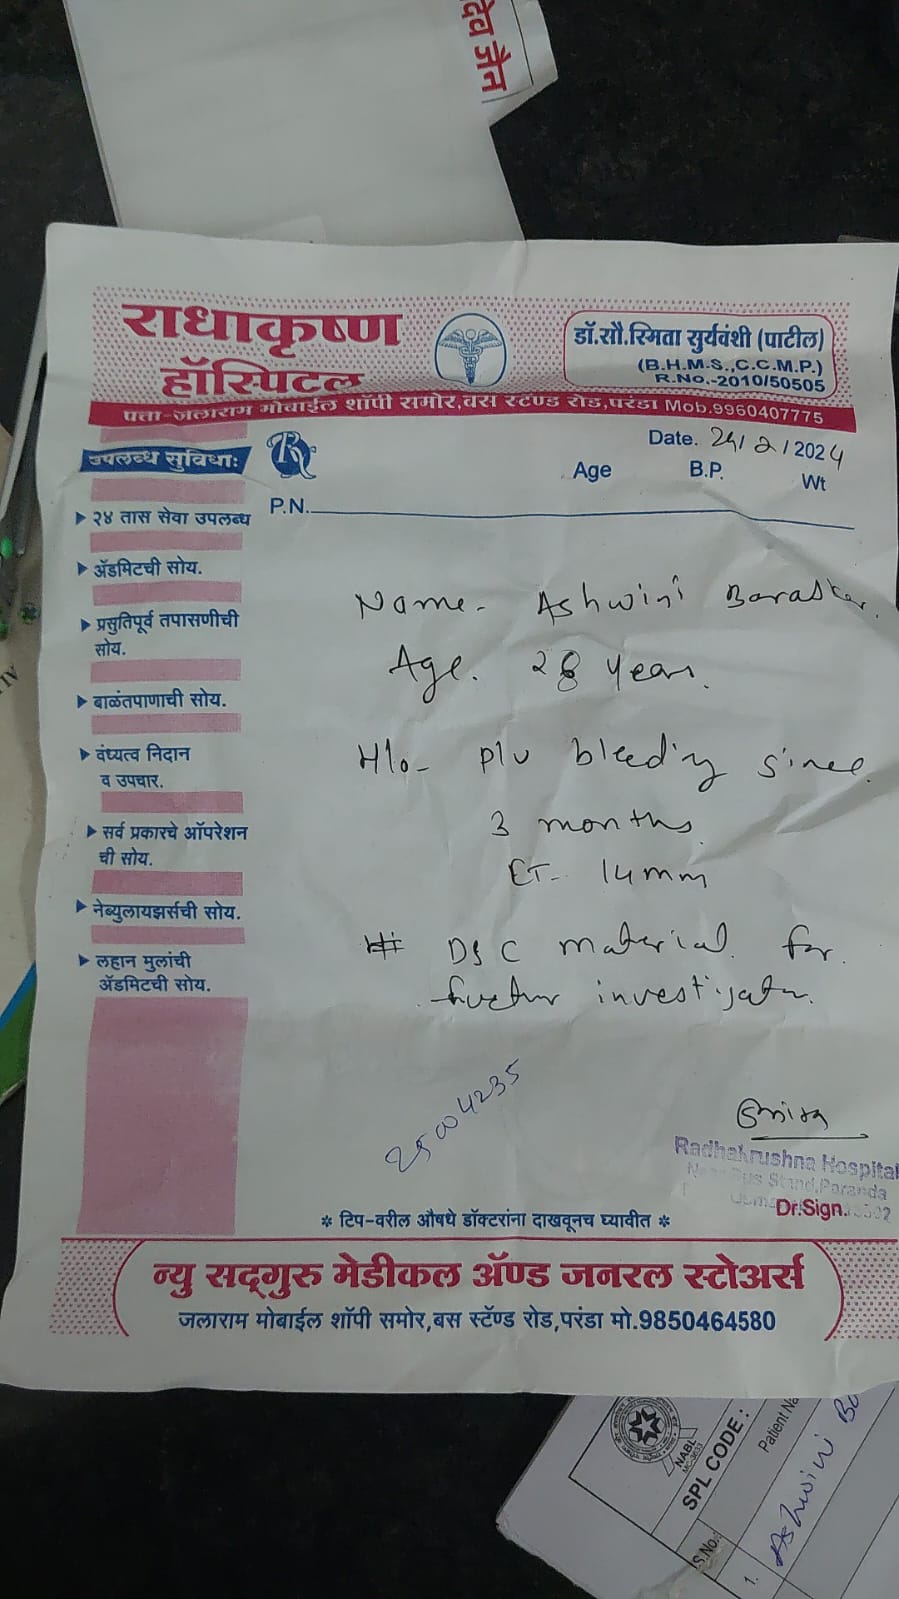 देव जैन
राधाकृष्ण
हॉस्पिटल
डॉ.सौ.स्मिता सुर्यवंशी (पाटील)
(B.H.M.S.,C.C.M.P.)
R.No.-2010/50505
पत्ता-जलाराम मोबाईल शॉपी समोर,बस स्टॅण्ड रोड,परंडा Mob.9960407775
उपलब्ध सुविधाः
Rx
Date. 24/2/2024
Age B.P. Wt
P.N.
▶ २४ तास सेवा उपलब्ध
▶ ॲडमिटची सोय.
▶ प्रसुतिपूर्व तपासणीची
सोय.
▶ बाळंतपाणाची सोय.
▶ वंध्यत्व निदान
व उपचार.
▶ सर्व प्रकारचे ऑपरेशन
ची सोय.
▶ नेब्युलायझर्सची सोय.
▶ लहान मुलांची
ॲडमिटची सोय.
Name- Ashwini
Age. 28 years.
H/o- P/v bleeding since
3 months.
ET- 14mm
# D&C material for
further investigation.
25004235
Radhakrushna Hospital
Near Bus Stand,Paranda
Dr.Sign.
* टिप-वरील औषधे डॉक्टरांना दाखवूनच घ्यावीत *
न्यु सद्‌गुरु मेडीकल ॲण्ड जनरल स्टोअर्स
जलाराम मोबाईल शॉपी समोर,बस स्टॅण्ड रोड,परंडा मो.9850464580
NABL
SPL CODE :
Patient Na
S.No.
1. Ashwini Bo